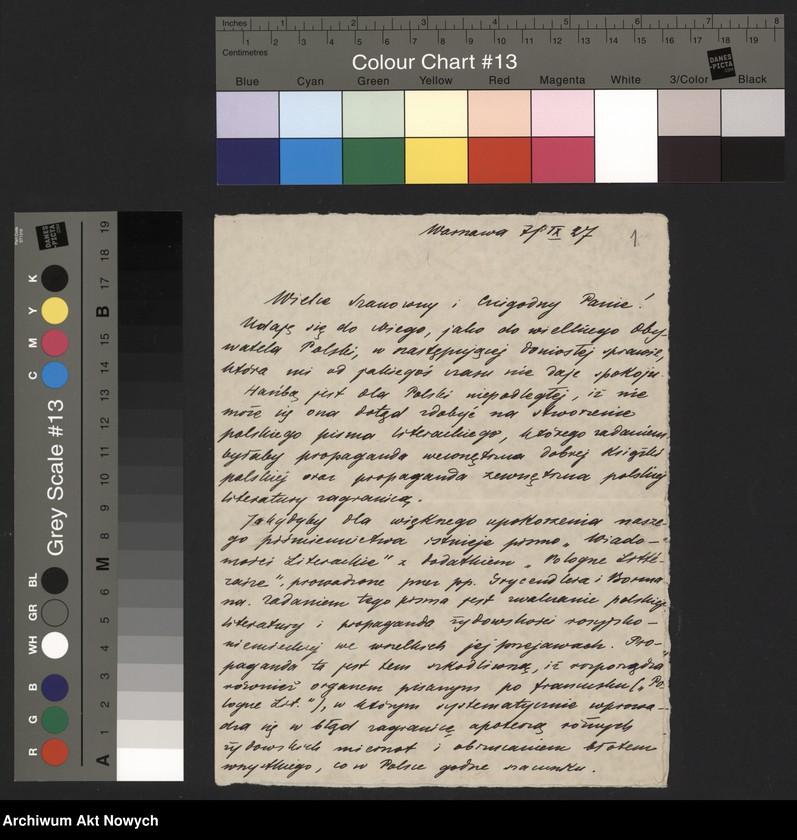 Inches 1 2 3 4 5 6 7 8
1 2 3 4 5 6 7 8 9 10 11 12 13 14 15 16 17 18 19
Centimetres
Colour Chart #13
DANES PICTA .COM
Blue Cyan Green Yellow Red Magenta White 3/Color Black
Grey Scale #13
C M Y K
R G B WH GR BL
A 1 2 3 4 5 6 M 8 9 10 11 12 13 14 15 B 17 18 19
Warszawa IX 27
1
Wielce szanowny i Czcigodny Panie!
Udaję się do Niego, jako do wielkiego Oby-
watela Polski, w następującej doniosłej sprawie,
która mi od jakiegoś czasu nie daje spokoju.
Hańbą jest dla Polski niepodległej, iż nie
może się ona dotąd zdobyć na stworzenie
polskiego pisma literackiego, którego zadaniem
byłaby propaganda wewnętrzna dobrej książki
polskiej oraz propaganda zewnętrzna polskiej
literatury zagranicą.
Jakgdyby dla większego upokorzenia nasze-
go piśmiennictwa istnieje pismo „Wiado-
mości Literackie" z dodatkiem „Pologne Litté-
raire", prowadzone przez pp. Grycendlera i Borma-
na. Zadaniem tego pisma jest zwalczanie polskiej
literatury i propaganda żydowskości rosyjsko-
niemieckiej we wszelkich jej przejawach. Pro-
paganda ta jest tem szkodliwszą, iż rozporządza
również organem pisanym po francusku („Po-
logne Lit."), w którym systematycznie wprowa-
dza się w błąd zagranicę apoteozą różnych
żydowskich miernot i obrzucaniem błotem
wszystkiego, co w Polsce godne szacunku.
Archiwum Akt Nowych